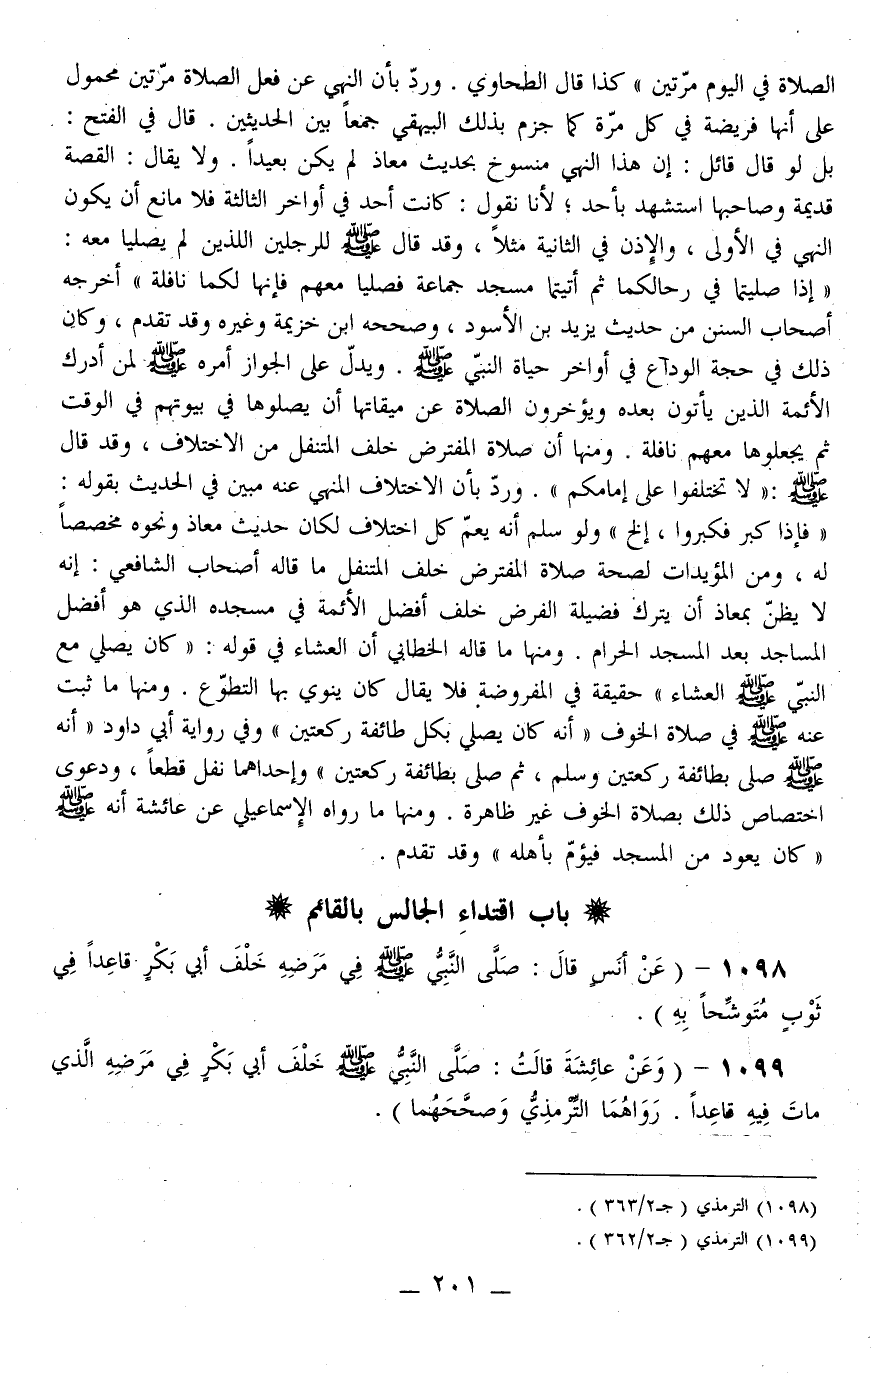 الصلاة في اليوم مرّتين » كذا قال الطحاوي . وردّ بأن النهي عن فعل الصلاة مرّتين محمول
على أنها فريضة في كل مرّة كما جزم بذلك البيهقي جمعاً بين الحديثين . قال في الفتح :
بل لو قال قائل : إن هذا النهي منسوخ بحديث معاذ لم يكن بعيداً . ولا يقال : القصة
قديمة وصاحبها استشهد بأحد ؛ لأنا نقول : كانت أحد في أواخر الثالثة فلا مانع أن يكون
النهي في الأولى ، والإذن في الثانية مثلاً ، وقد قال ﷺ للرجلين اللذين لم يصليا معه :
« إذا صليتما في رحالكما ثم أتيتما مسجد جماعة فصليا معهم فإنها لكما نافلة » أخرجه
أصحاب السنن من حديث يزيد بن الأسود ، وصححه ابن خزيمة وغيره وقد تقدم ، وكان
ذلك في حجة الوداع في أواخر حياة النبيّ ﷺ . ويدلّ على الجواز أمره ﷺ لمن أدرك
الأئمة الذين يأتون بعده ويؤخرون الصلاة عن ميقاتها أن يصلوها في بيوتهم في الوقت
ثم يجعلوها معهم نافلة . ومنها أن صلاة المفترض خلف المتنفل من الاختلاف ، وقد قال
ﷺ :« لا تختلفوا على إمامكم » . وردّ بأن الاختلاف المنهي عنه مبين في الحديث بقوله :
« فإذا كبر فكبروا ، إلخ » ولو سلم أنه يعمّ كل اختلاف لكان حديث معاذ ونحوه مخصصاً
له ، ومن المؤيدات لصحة صلاة المفترض خلف المتنفل ما قاله أصحاب الشافعي : إنه
لا يظنّ بمعاذ أن يترك فضيلة الفرض خلف أفضل الأئمة في مسجده الذي هو أفضل
المساجد بعد المسجد الحرام . ومنها ما قاله الخطابي أن العشاء في قوله : « كان يصلي مع
النبيّ ﷺ العشاء » حقيقة في المفروضة فلا يقال كان ينوي بها التطوّع . ومنها ما ثبت
عنه ﷺ في صلاة الخوف « أنه كان يصلي بكل طائفة ركعتين » وفي رواية أبي داود « أنه
ﷺ صلى بطائفة ركعتين وسلم ، ثم صلى بطائفة ركعتين » وإحداهما نفل قطعاً ، ودعوى
اختصاص ذلك بصلاة الخوف غير ظاهرة . ومنها ما رواه الإسماعيلي عن عائشة أنه ﷺ
« كان يعود من المسجد فيؤمّ بأهله » وقد تقدم .
باب اقتداءِ الجالس بالقائم
١٠٩٨ – ( عَنْ أَنَسٍ قالَ : صَلَّى النَّبِيُّ ﷺ فِي مَرَضِهِ خَلْفَ أبي بَكْرٍ قاعِداً فِي
ثَوْبٍ مُتَوشِّحاً بِهِ ) .
١٠٩٩ – ( وَعَنْ عائِشَةَ قالَتْ : صَلَّى النَّبِيُّ ﷺ خَلْفَ أبي بَكْرٍ فِي مَرَضِهِ الَّذي
ماتَ فِيهِ قاعِداً . رَوَاهُمَا التِّرْمذِيُّ وَصحَّحَهُما ) .
(١٠٩٨) الترمذي ( جـ٣٦٣/٢ ) .
(١٠٩٩) الترمذي ( جـ٣٦٢/٢ ) .
— ٢٠١ —